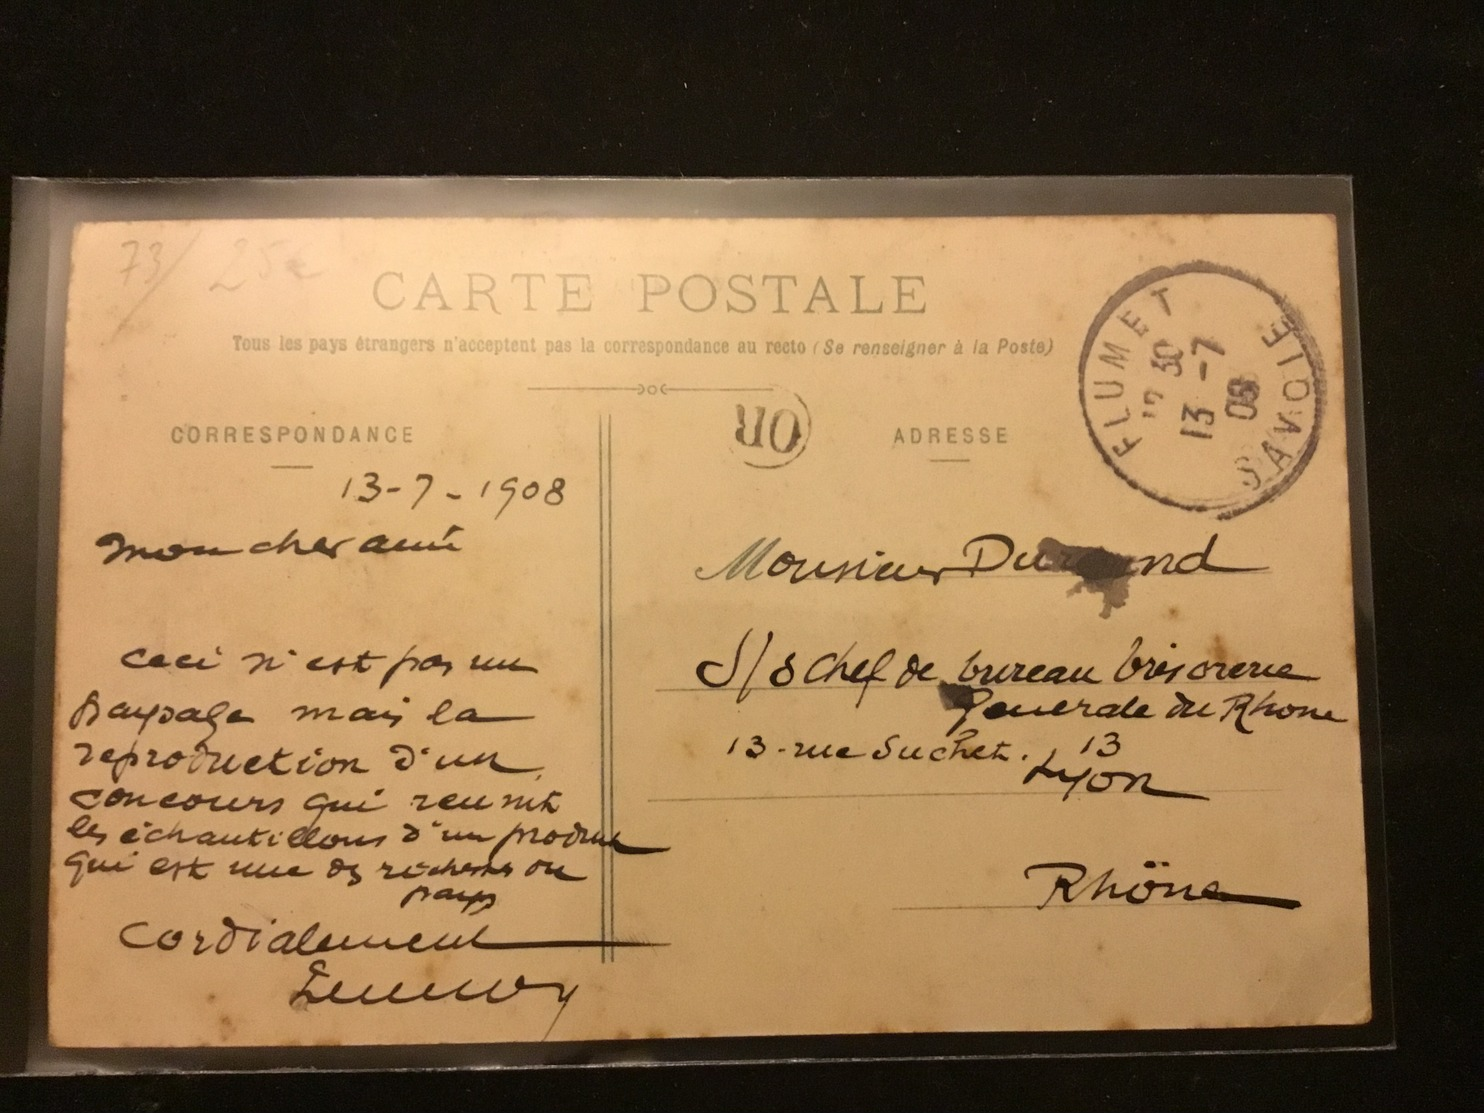 73/ 25c
CARTE POSTALE
Tous les pays étrangers n'acceptent pas la correspondance au recto (Se renseigner à la Poste)
CORRESPONDANCE
13-7-1908
mon cher ami
ceci n'est pas un
paysage mais la
reproduction d'un
concours qui reunit
les échantillons d'un produit
qui est une des richesses du
pays
Cordialement
OR
ADRESSE
FLUMET
SAVOIE
30
13 -7
08
Monsieur Durand
S/s chef de bureau trésorerie
Generale du Rhone
13 - rue Suchet. 13
Lyon
Rhône